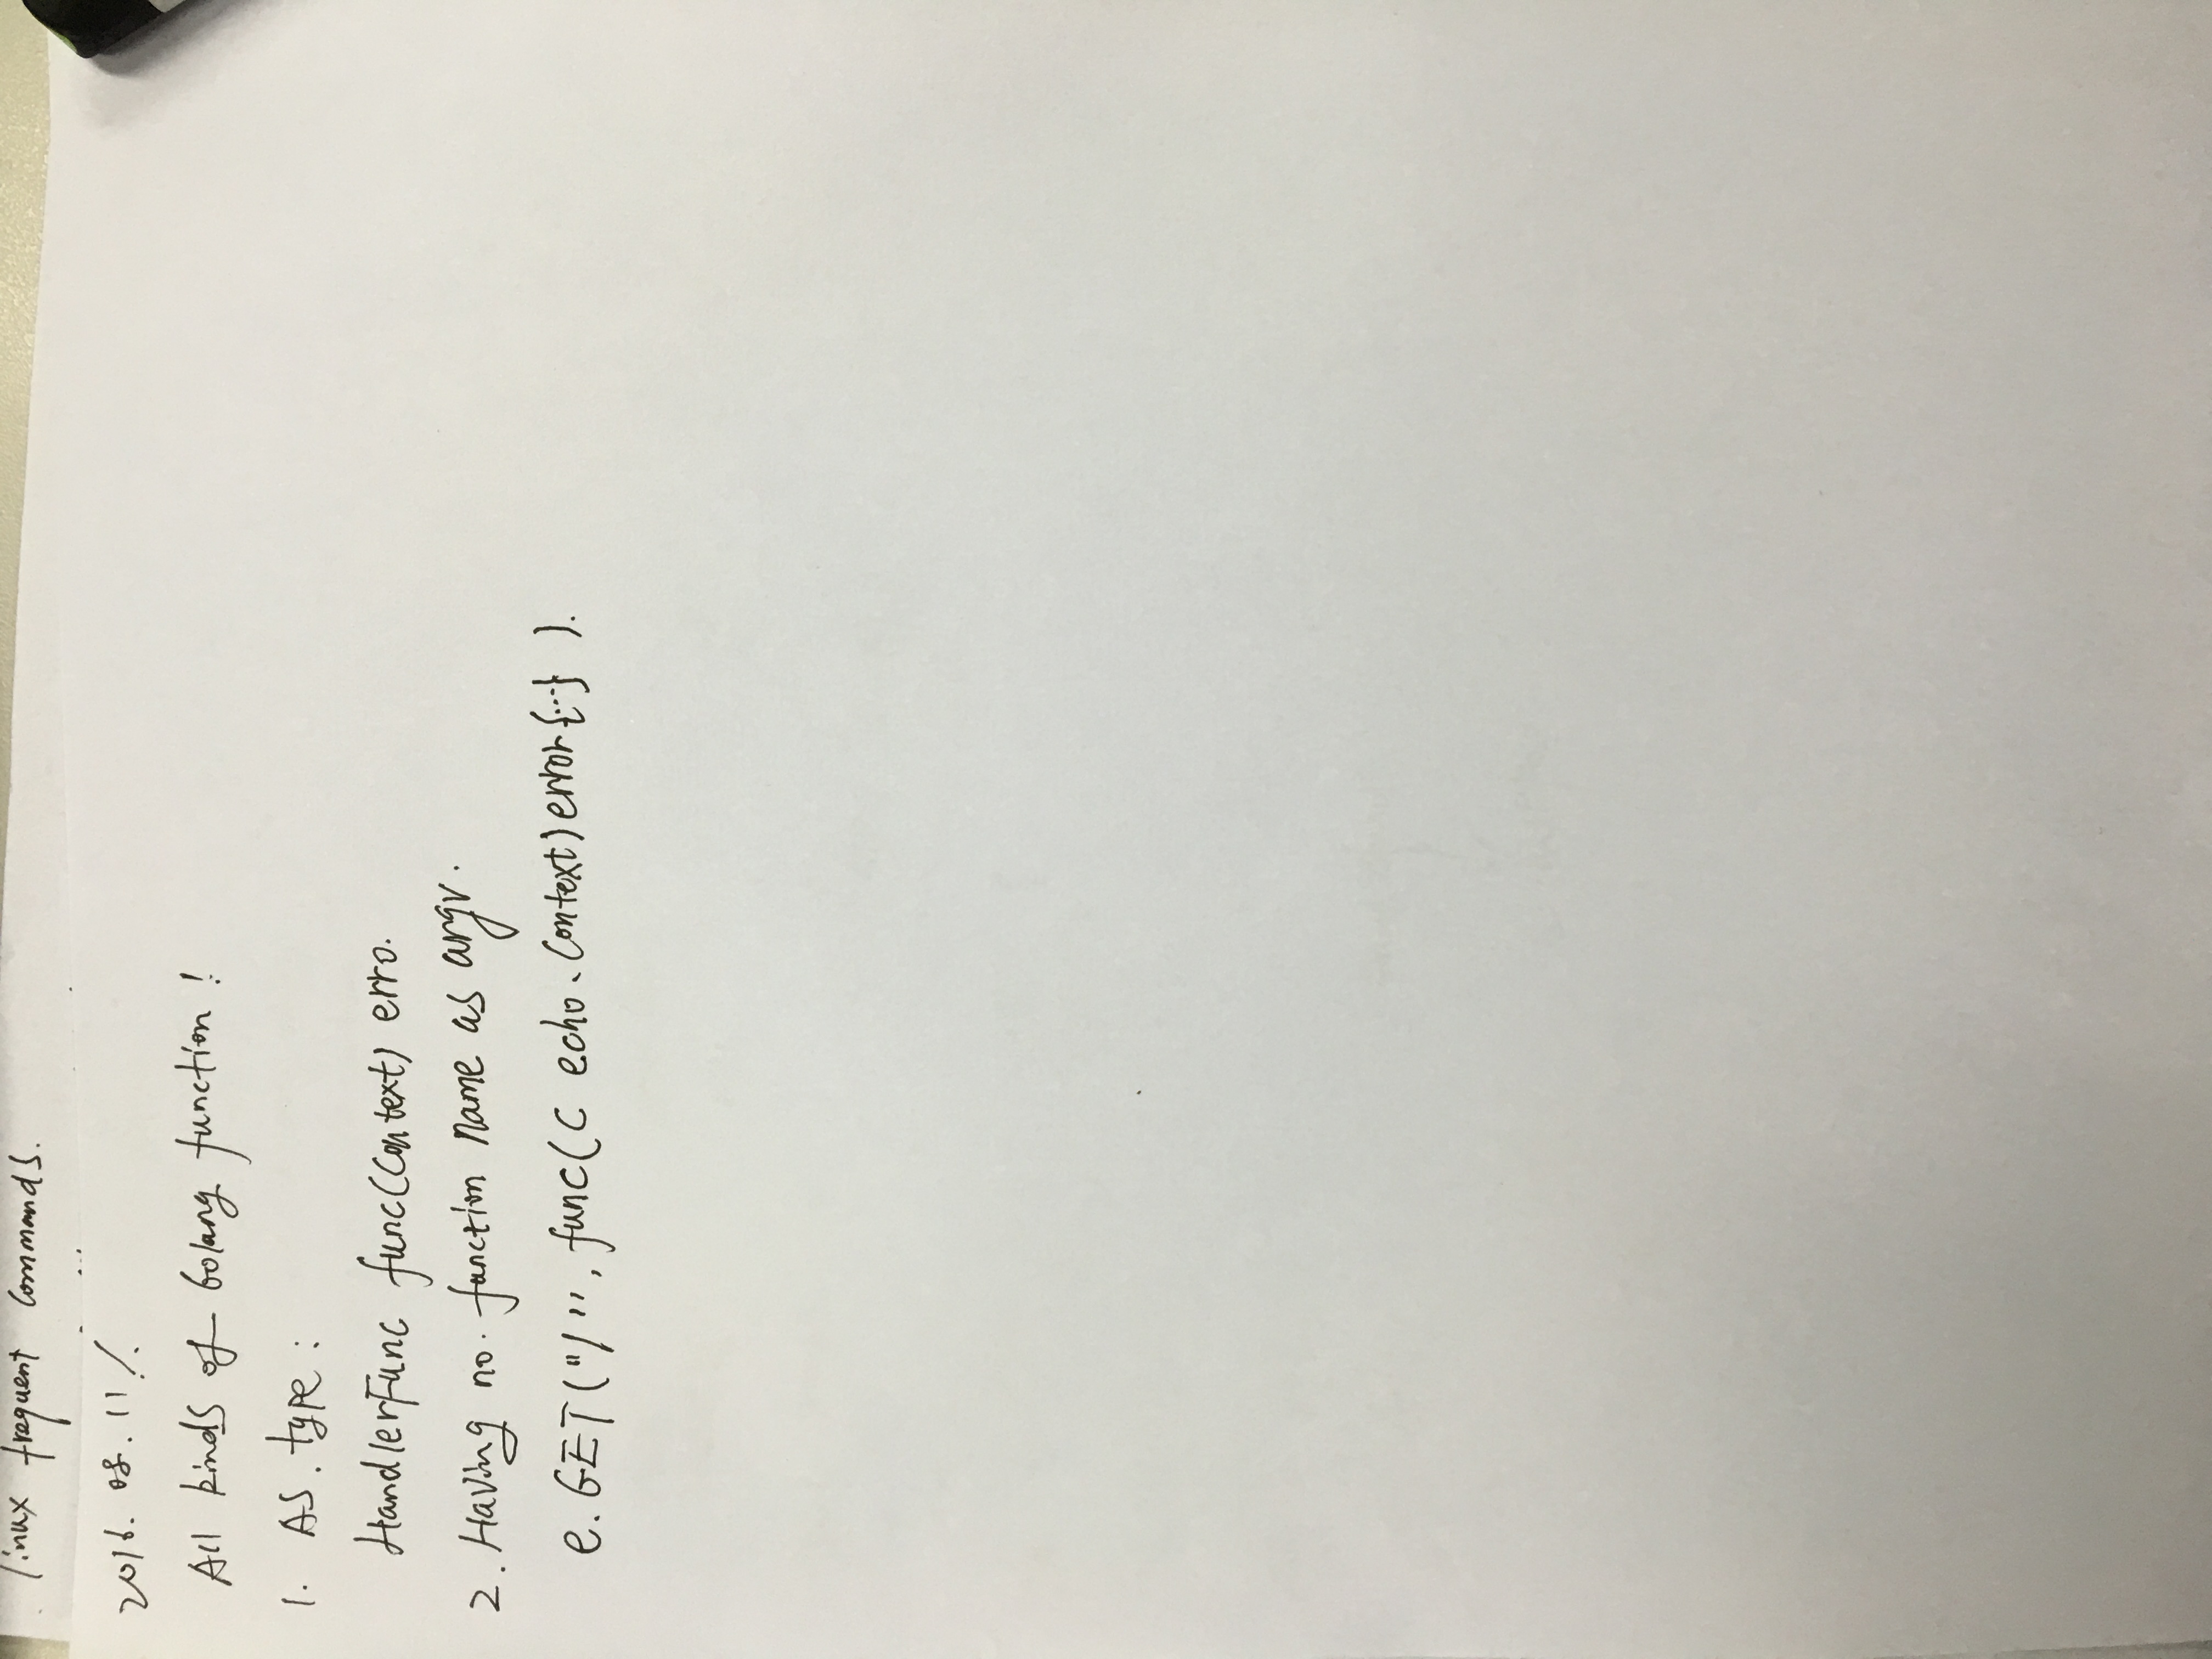 linux frequent commands.
2016. 08. 11 /.
All kinds of Golang function !
1. AS. type :
HandlerFunc func(Context) erro.
2. Having no. function name as argv.
e. GET("/", func(C echo. Context) error{...} ).